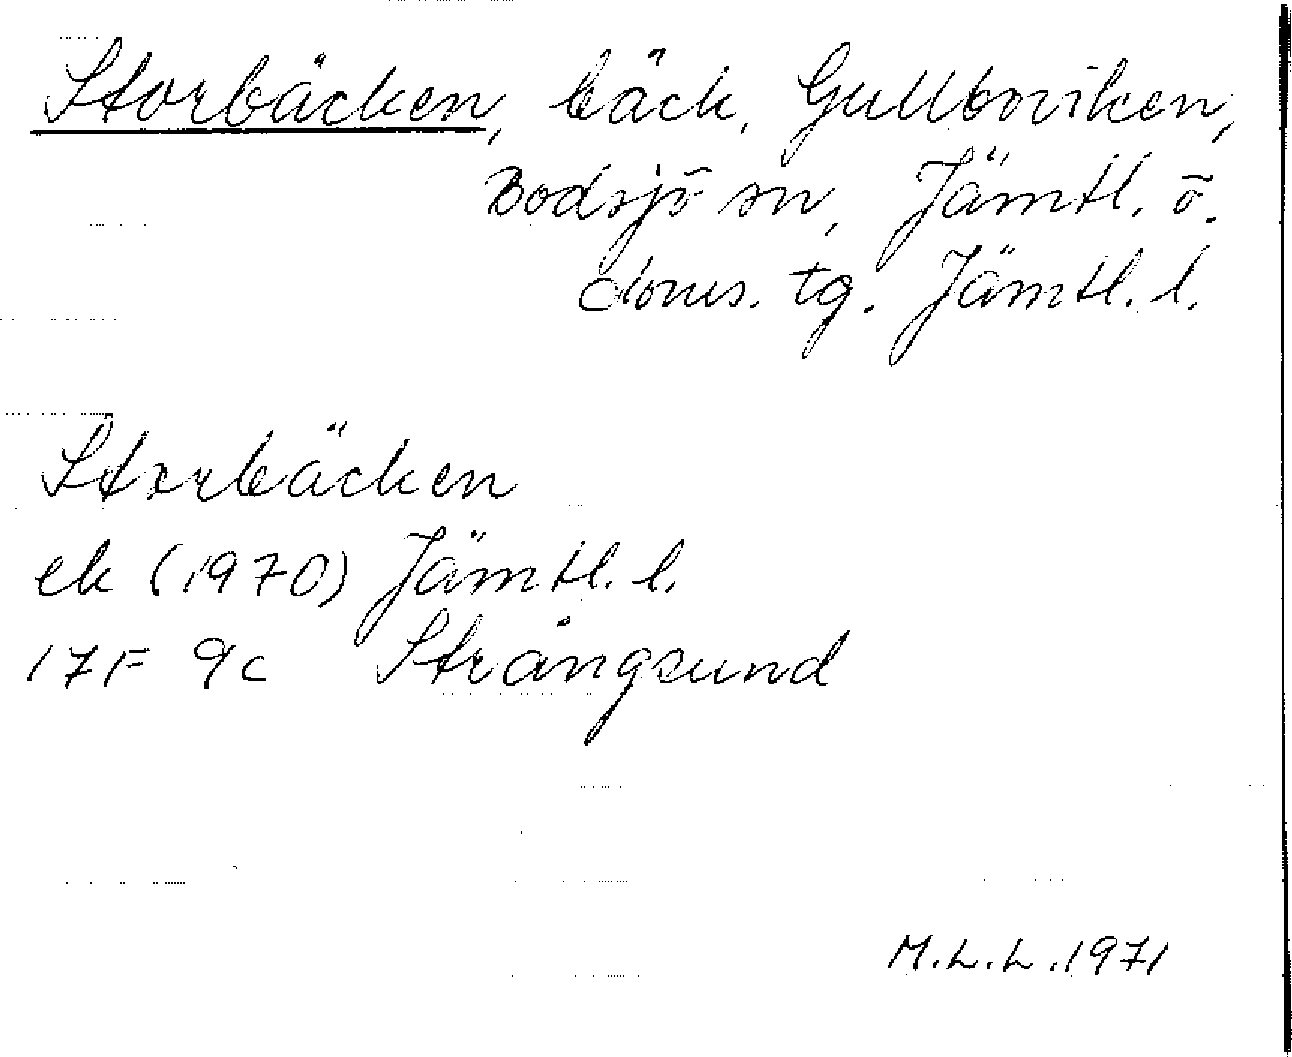 Storbäcken, bäck, Gullboviken,
Bodsjö sn, Jämtl. ö.
doms. tg. Jämtl. l.
Storbäcken
ek (1970) Jämtl. l.
17F 9c Strångsund
M.L.L. 1971